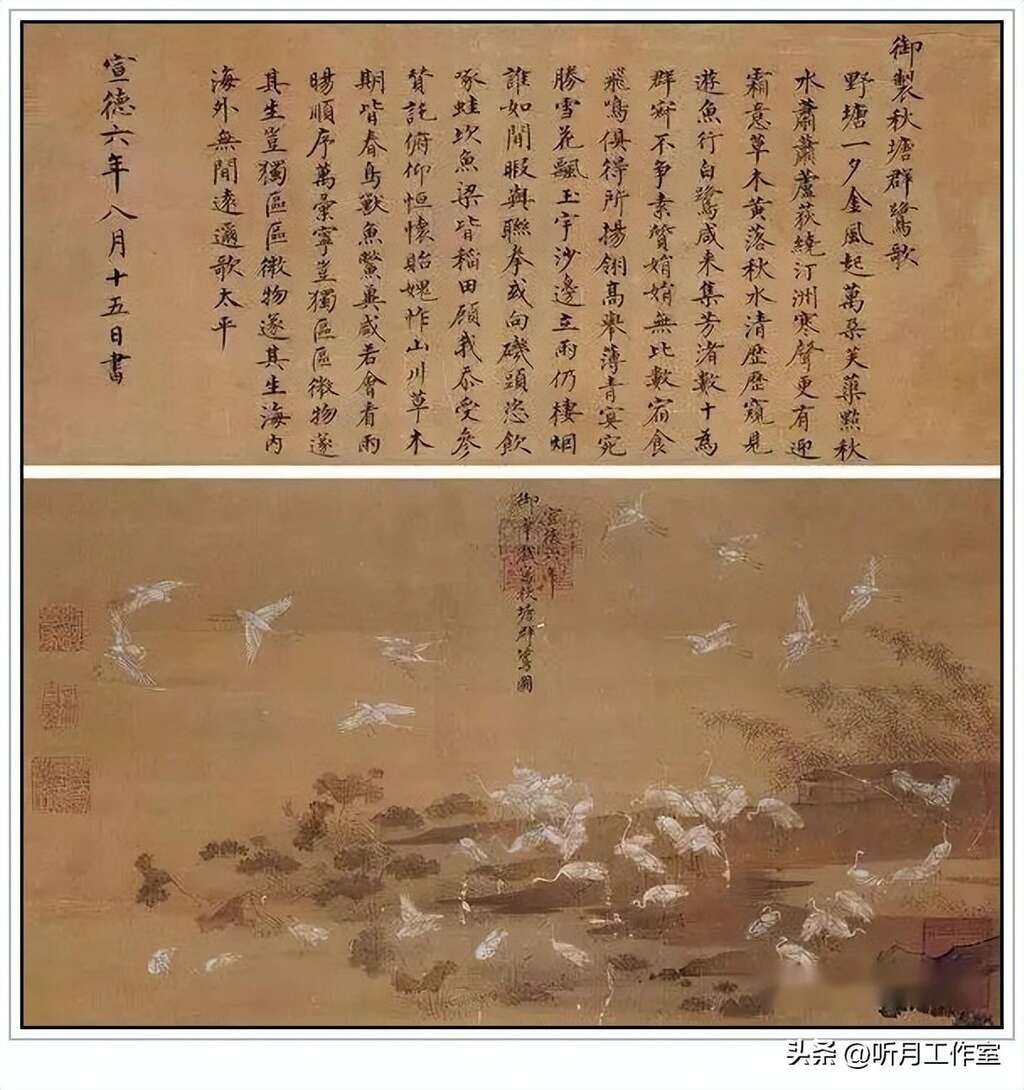 御製秋塘群鷺歌
野塘一夕金風起萬朵芙蕖點秋
水蕭蕭蘆荻繞汀洲寒聲更有迎
霜意草木黃落秋水清歷歷窺見
遊魚行白鷺咸来集芳渚數十為
群寂不争素質娟娟無比數宿食
飛鳴俱得所揚翎高舉薄青冥宛
勝雪花飄玉宇沙邊立雨仍棲烟
誰如閒暇與聯拳或向磯頭恣飲
啄蛙坎魚梁皆稻田顧我忝受參
贊託俯仰恒懷貽媿怍山川草木
期皆春鳥獸魚鱉兾咸若會看雨
暘順序萬彙寧豈獨區區微物遂
其生豈獨區區微物遂其生海内
海外無間遠邇歌太平
宣德六年八月十五日書
宣德六年
御筆戲寫秋塘群鷺圖
头条 @听月工作室